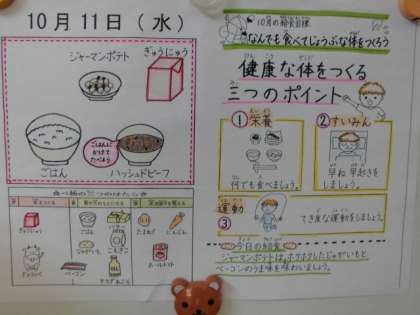 10月11日（水）
ジャーマンポテト
ぎゅうにゅう
ごはんに
かけて
たべよう
ごはん
ハッシュドビーフ
ぎゅうにゅう
ごはん
バター
じゃがいも
こむぎこ
ベーコン
たまねぎ
にんじん
ホールトマト
10月の給食目標
なんでも食べてじょうぶな体をつくろう
健康な体をつくる
三つのポイント
①栄養
何でも食べましょう。
②すいみん
早ね早起きを
しましょう。
運動
③
てき度な運動をしましょう。
今日の給食
ジャーマンポテトは、ホクホクしたじゃがいもと
ベーコンのうま味を味わいましょう。